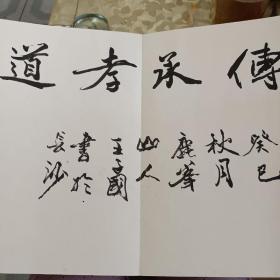 傳承孝道
癸巳
秋月
麓峯
山人
王子國
書於
長沙